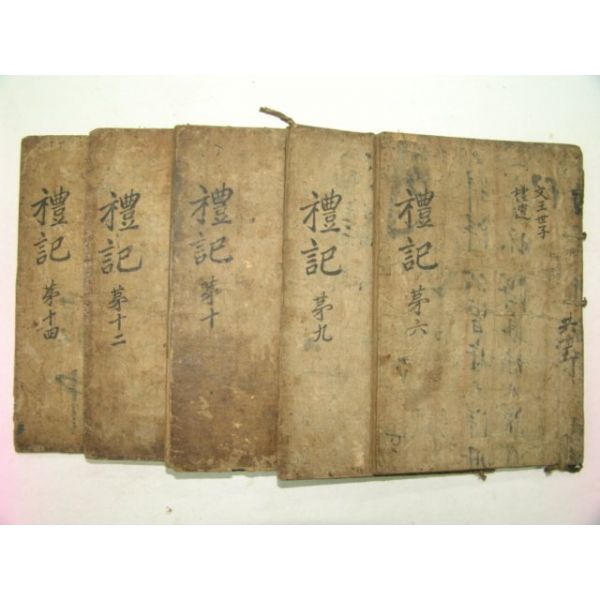 禮記 第六
文王世子
禮運
禮記 第九
禮記 第十
禮記 第十二
禮記 第十四